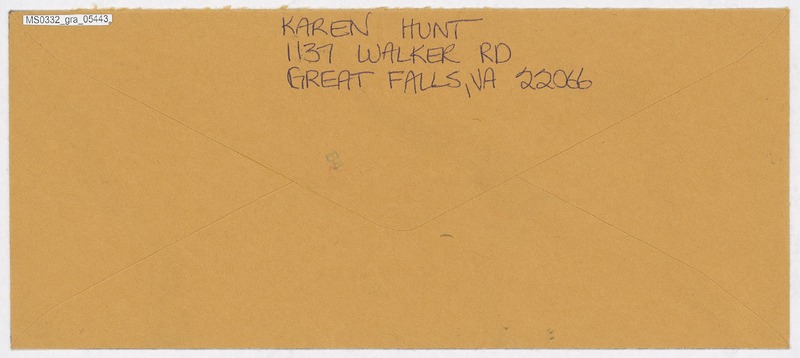 MS0332_gra_05443
KAREN HUNT
1137 WALKER RD
GREAT FALLS, VA 22066